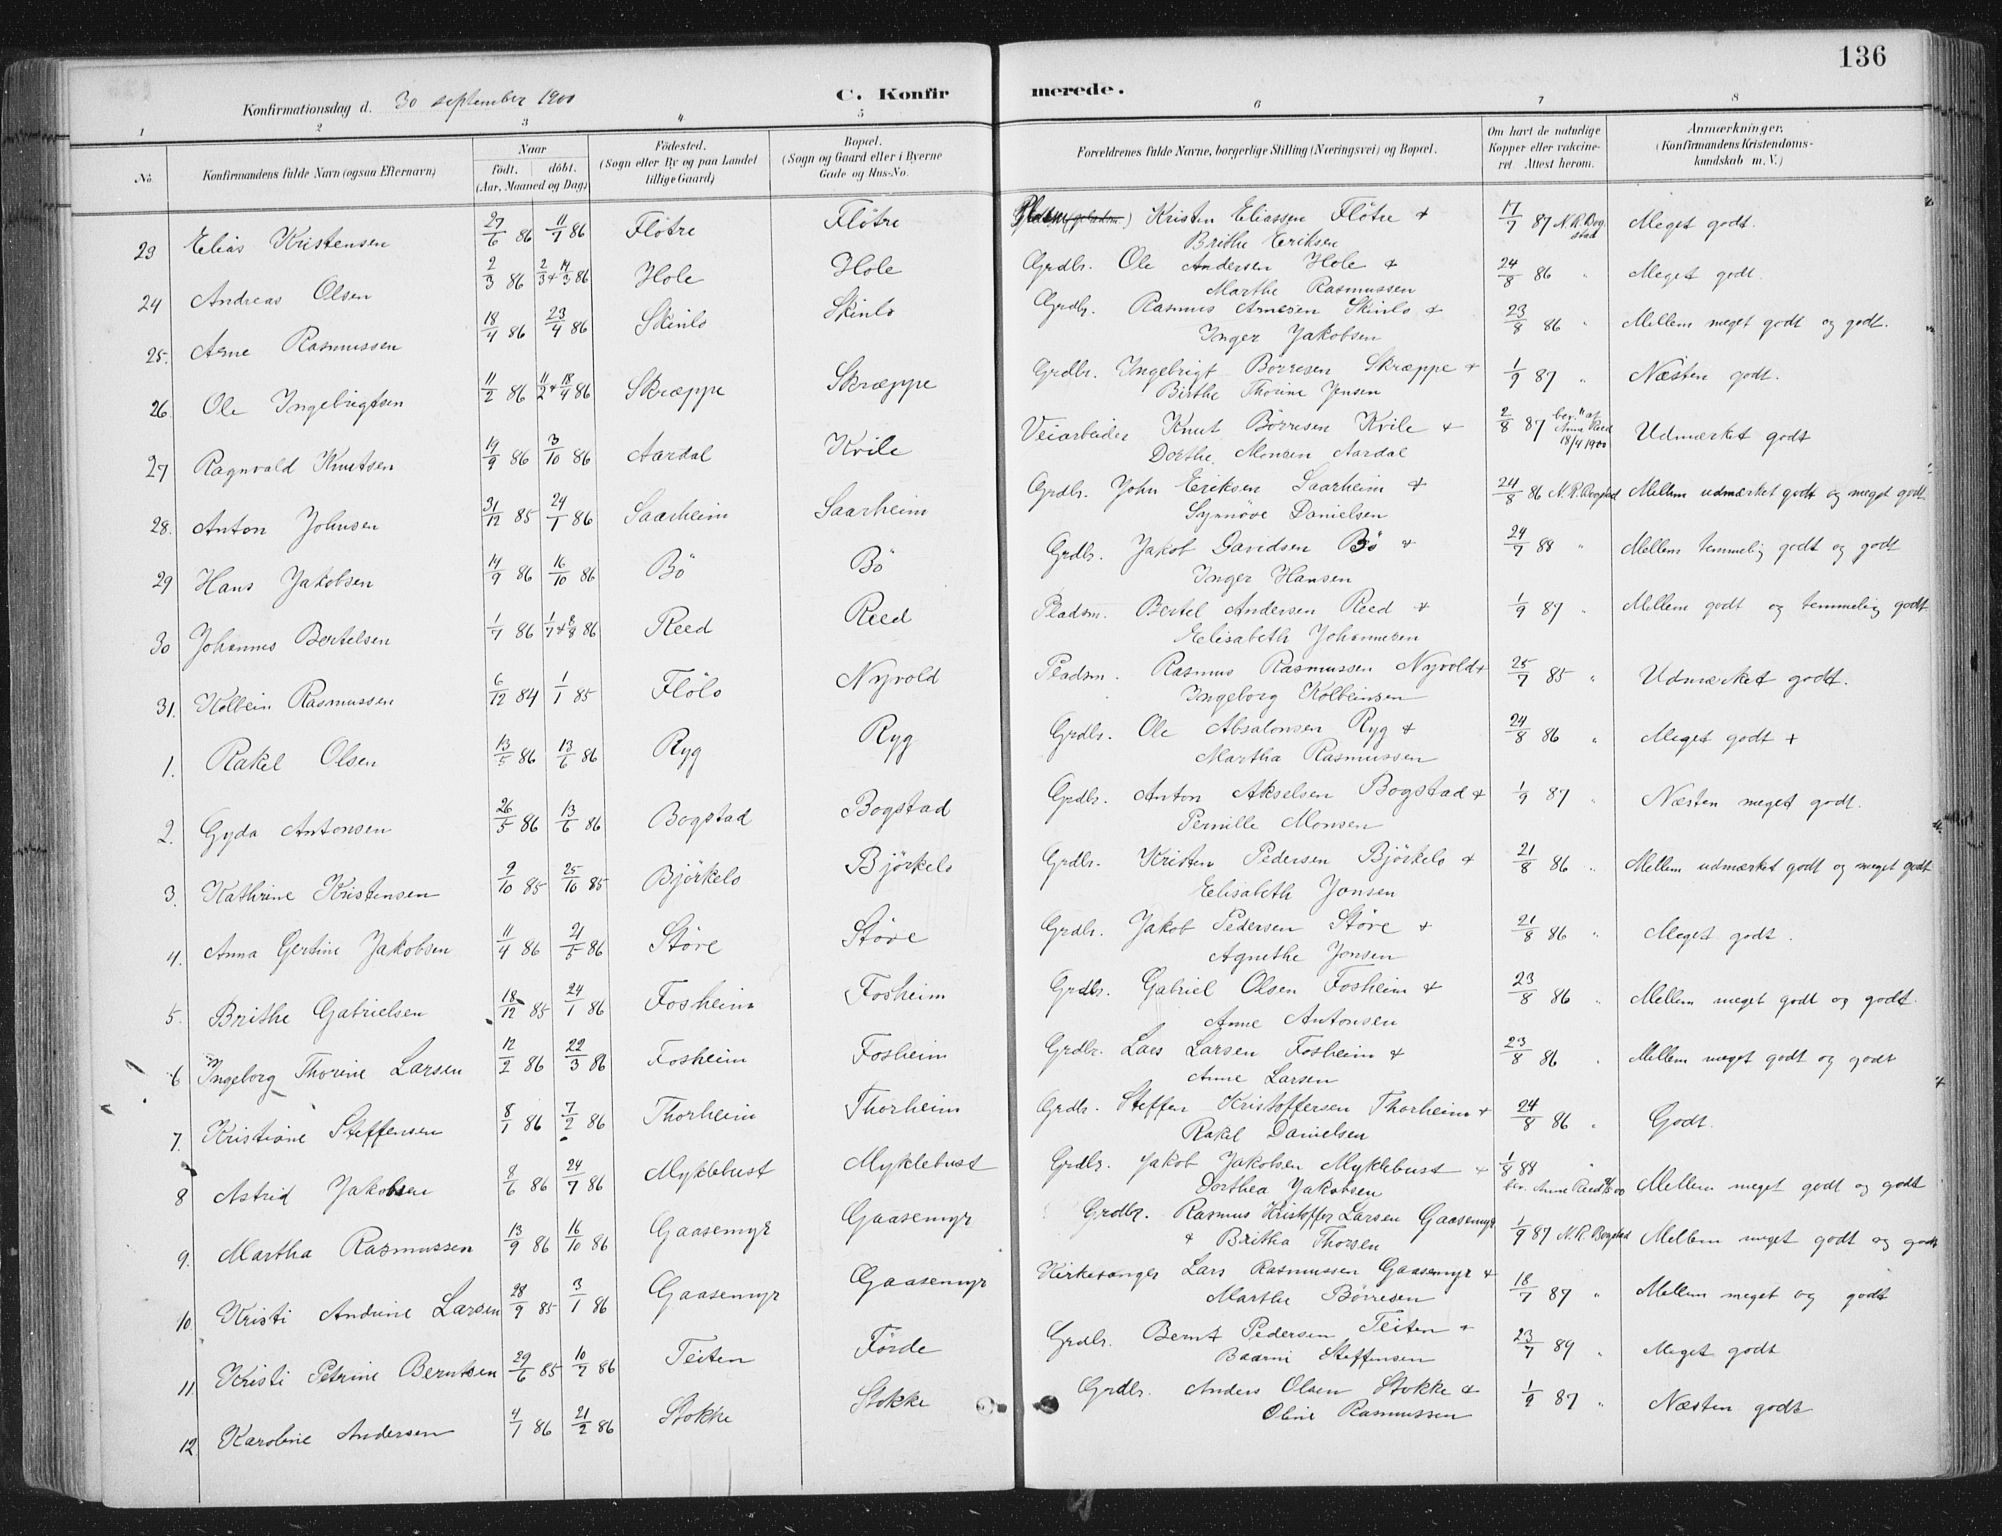 136
Konfirmationsdag d. 30 september 1900
C. Konfirmerede.
1 2 3 4 5 6 7 8
No. Konfirmandens fulde Navn (ogsaa Efternavn) Naar födt. döbt. (Aar, Maaned og Dag) Födested. (Sogn eller By og paa Landet tillige Gaard) Bopæl. (Sogn og Gaard eller i Byerne Gade og Hus-No. Forældrenes fulde Navne, borgerlige Stilling (Næringsvei) og Bopæl. Om havt de naturlige Kopper eller vakcineret. Attest herom. Anmærkninger. (Konfirmandens Kristendomskundskab m. V.)
29 Elias Kristensen 27/6 86 11/7 86 Flötre Flötre Kristen Eliassen Flötre + 17/7 87 N.R. Bogstad Meget godt.
Brithe Eriksen
24 Andreas Olsen 2/3 86 2/3 + 14/3 86 Hole Hole Grdbr. Ole Andersen Hole + 24/8 86 " Meget godt.
Marthe Rasmussen
25. Arne Rasmussen 18/4 86 23/4 86 Skinlo Skinlo Grdbr. Rasmus Arnesen Skinlo + 23/8 86 " Mellem meget godt og godt.
Inger Jakobsen
26. Ole Ingebrigtsen 11/2 86 11/2 + 18/4 86 Skræppe Skræppe Grdbr. Ingebrigt Börresen Skræppe + 1/9 87 " Næsten godt.
Birthe Thorine Jensen
27 Ragnvald Knutsen 19/9 86 3/10 86 Aardal Kvile Veiarbeider Knut Börresen Kvile + 2/8 87 bev. af Anna Reed 18/4 1900 Udmærket godt
Dorthe Monsen Aardal
28. Anton Johnsen 31/12 85 24/1 86 Saarheim Saarheim Grdbr. John Eriksen Saarheim + 24/8 86 N.R. Bogstad Mellem udmærket godt og meget godt
Synnöve Danielsen
29 Hans Jakobsen 14/9 86 16/10 86 Bö Bö Grdbr. Jakob Davidsen Bö + 24/7 88 " Mellem temmelig godt og godt
Inger Hansen
30 Johannes Bertelsen 1/7 86 1/7 + 8/8 86 Reed Reed Pladsm. Bertel Andersen Reed + 1/9 87 " Mellem godt og temmelig godt
Elisabeth Johannesen
31. Kolbein Rasmussen 6/12 84 1/1 85 Flölo Nyvold Pladsm. Rasmus Rasmussen Nyvold + 25/7 85 " Udmærket godt.
Ingeborg Kolbeinsen
1. Rakel Olsen 13/5 86 13/6 86 Ryg Ryg Grdbr. Ole Absalonsen Ryg + 24/8 86 " Meget godt +
Martha Rasmussen
2. Gyda Antonsen 26/5 86 13/6 86 Bogstad Bogstad Grdbr. Anton Akselsen Bogstad + 1/9 87 " Næsten meget godt.
Pernille Monsen
3. Kathrine Kristensen 9/10 85 25/10 85 Björkelo Björkelo Grdbr. Kristen Pedersen Björkelo + 21/8 86 " Mellem udmærket godt og meget godt
Elisabeth Jonsen
4. Anna Gertine Jakobsen 11/4 86 21/5 86 Störe Störe Grdbr. Jakob Pedersen Störe + 21/8 86 " Meget godt.
Agnethe Jonsen
5. Brithe Gabrielsen 18/12 85 24/1 86 Fosheim Fosheim Grdbr. Gabriel Olsen Fosheim + 23/8 86 " Mellem meget godt og godt.
Anne Antonsen
6 Ingeborg Thorine Larsen 12/2 86 22/3 86 Fosheim Fosheim Grdbr. Lars Larsen Fosheim + 23/8 86 " Mellem meget godt og godt
Anne Larsen
7. Kristiane Steffensen 8/1 86 7/2 86 Thorheim Thorheim Grdbr. Steffen Kristoffersen Thorheim + 24/8 86 " Godt.
Rakel Danielsen
8 Astrid Jakobsen 8/6 86 24/7 86 Myklebust Myklebust Grdbr. Jakob Jakobsen Myklebust + 1/8 88 bev. Anne Reed Mellem meget godt og godt
Dorthea Jakobsen
9. Martha Rasmussen 13/9 86 16/10 86 Gaasemyr Gaasemyr Grdbr. Rasmus Kristoffer Larsen Gaasemyr 1/9 87 N.R. Bogstad Mellem meget godt og godt
+ Britha Thorsen
10 Kristi Andrine Larsen 28/9 85 3/1 86 Gaasemyr Gaasemyr Kirkesanger Lars Rasmussen Gaasemyr + 18/7 87 " Mellem meget og godt
Marthe Börresen
11. Kristi Petrine Berntsen 29/6 85 10/7 86 Teiten Förde Grdbr. Bernt Pedersen Teiten + 23/7 89 " Meget godt
Baarni Steffensen
12 Karoline Andersen 4/1 86 21/2 86 Stokke Stokke Grdbr. Anders Olsen Stokke + 1/9 87 " Næsten godt
Oline Rasmussen